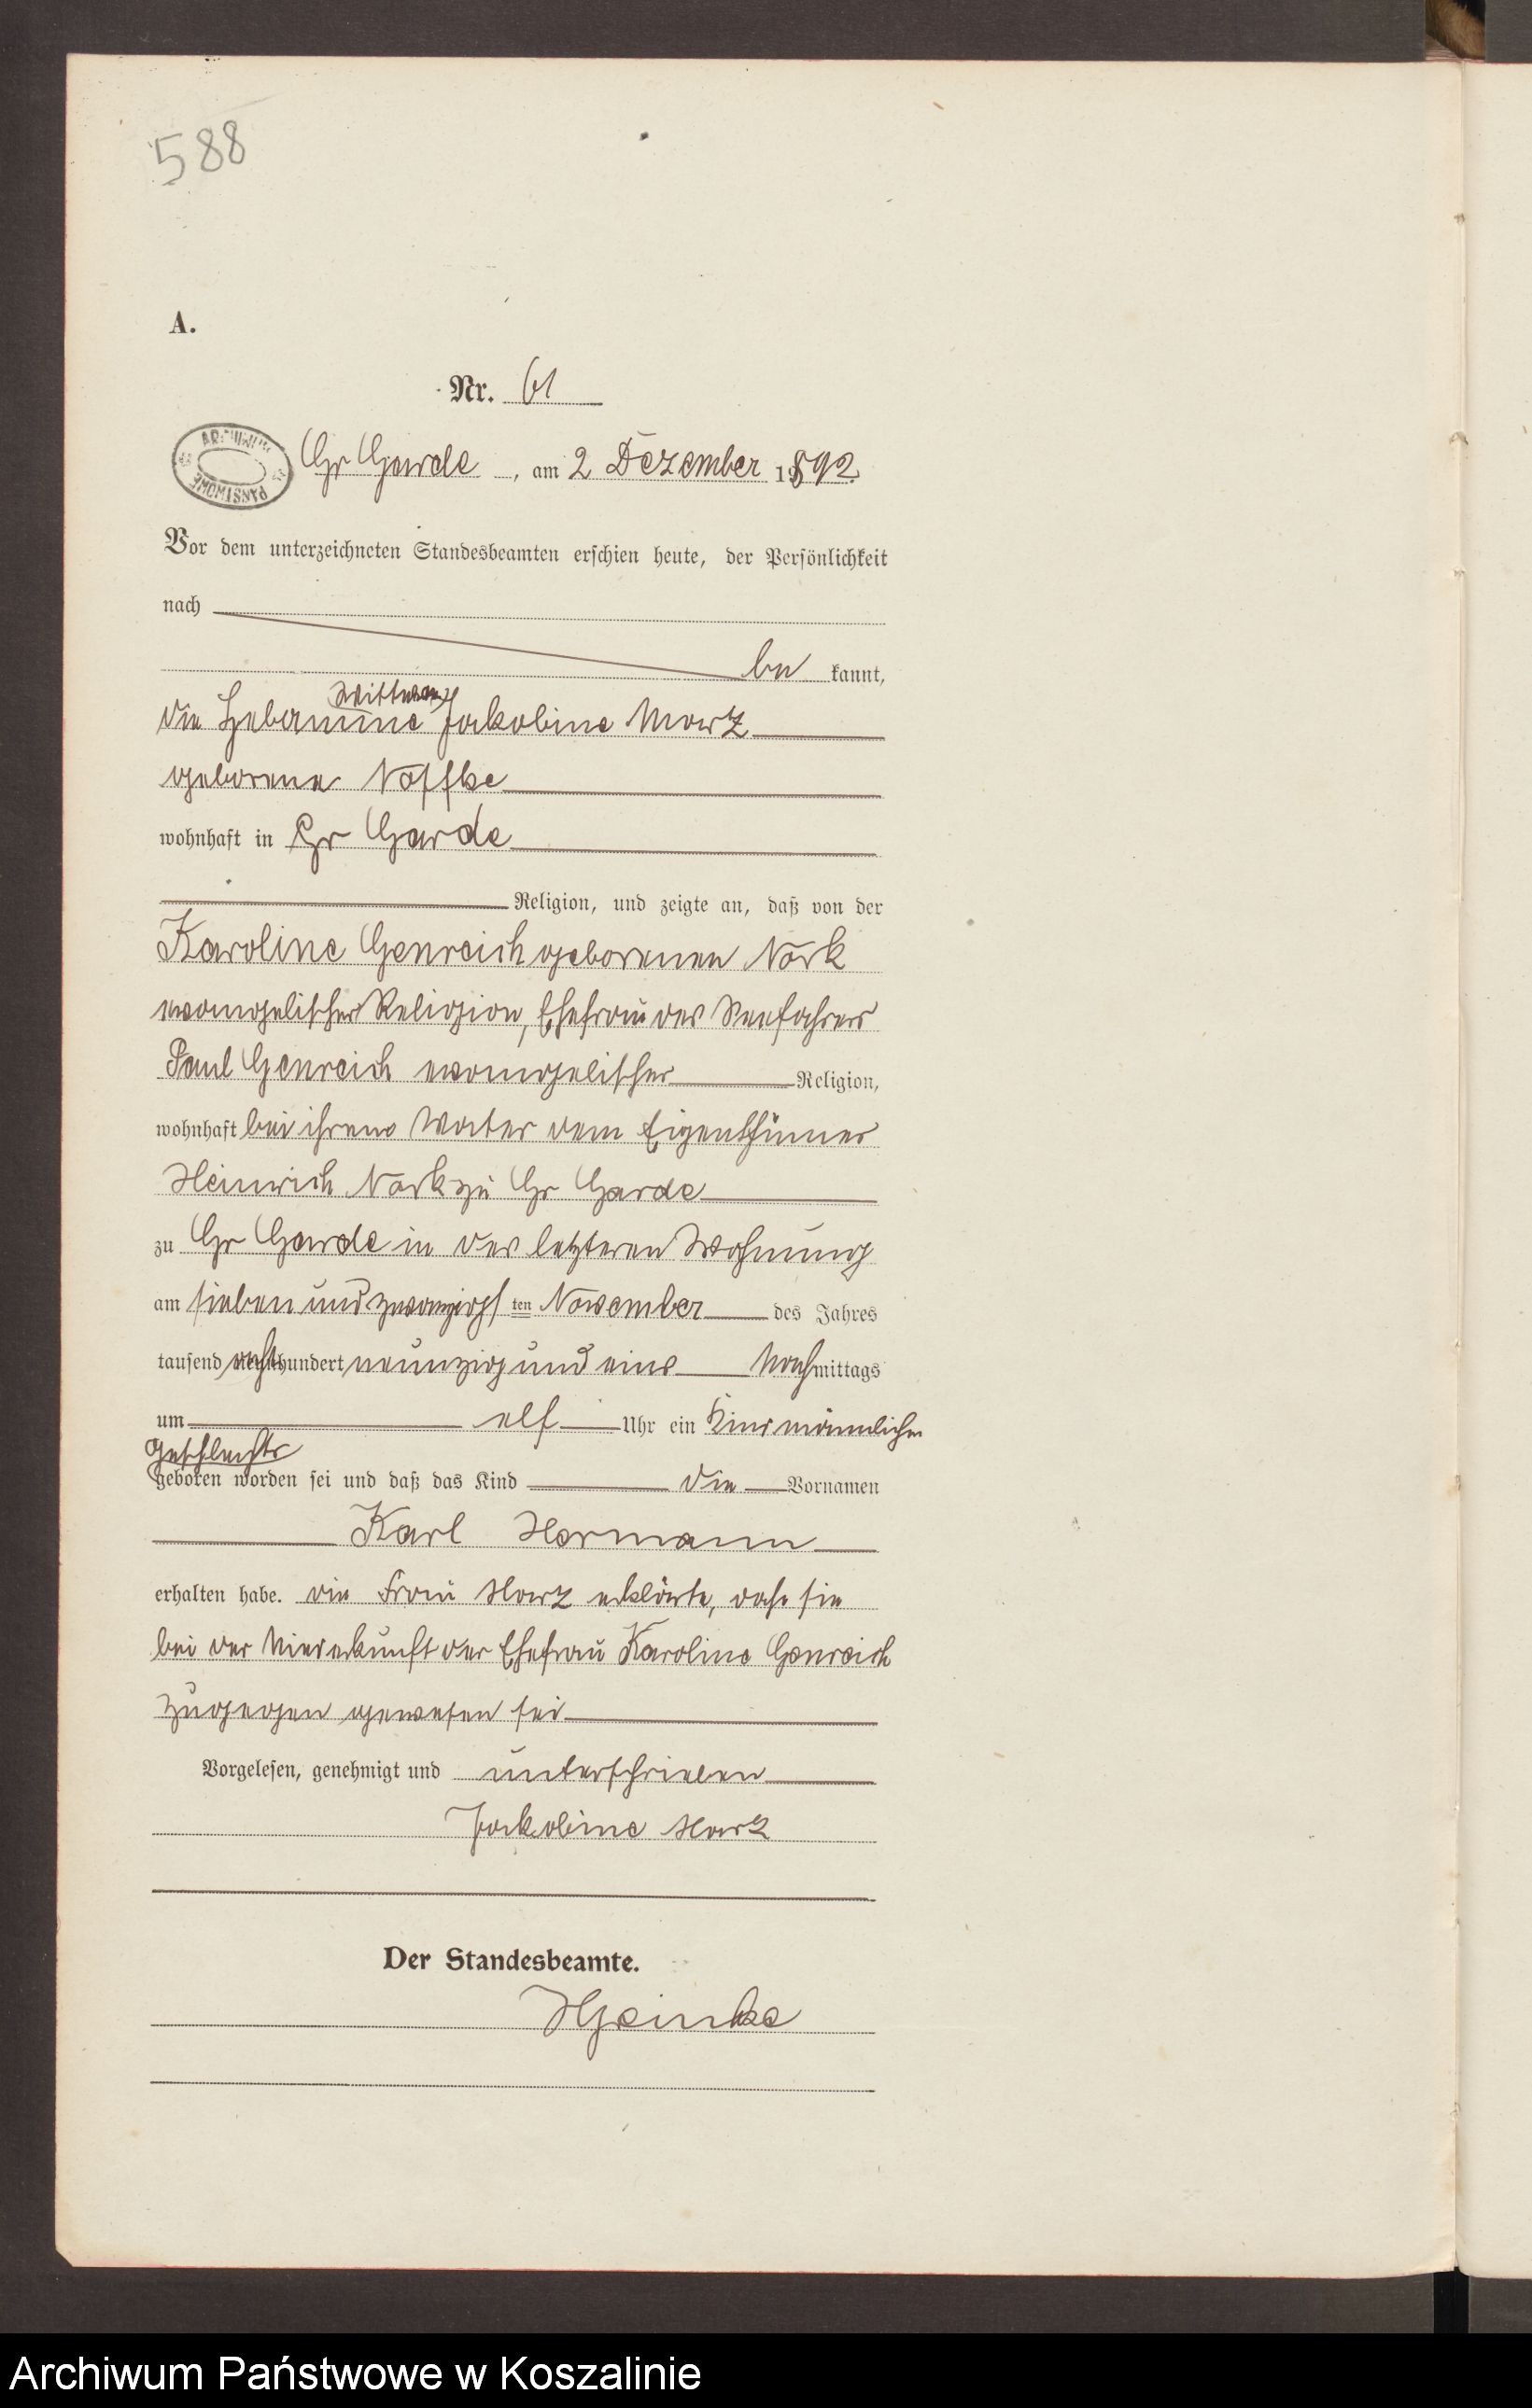 588
A.
Nr. 61
ARCHIWUM PAŃSTWOWE
Gr Garde, am 2 Dezember 1892.
Vor dem unterzeichneten Standesbeamten erschien heute, der Persönlichkeit
nach
be kannt,
Wittwe
die Hebamme Jakobine Marz
geborene Noffke
wohnhaft in Gr Garde
Religion, und zeigte an, daß von der
Karoline Genreich geborenen Nork
evangelischer Religion, Ehefrau des Seefahrers
Paul Genreich evangelischer Religion,
wohnhaft bei ihrem Vater dem Eigenthümer
Heinrich Nork zu Gr Garde
zu Gr Garde in der letzteren Wohnung
am sieben und zwanzigsten November des Jahres
tausend acht hundert neunzig und eins Nachmittags
um elf Uhr ein Kind männlichen
Geschlechts
geboren worden sei und daß das Kind die Vornamen
Karl Hermann
erhalten habe. die Frau Marz erklärte, dass sie
bei der Niederkunft der Ehefrau Karoline Genreich
zugegen gewesen sei
Vorgelesen, genehmigt und unterschrieben
Jakobine Marz
Der Standesbeamte.
Archiwum Państwowe w Koszalinie